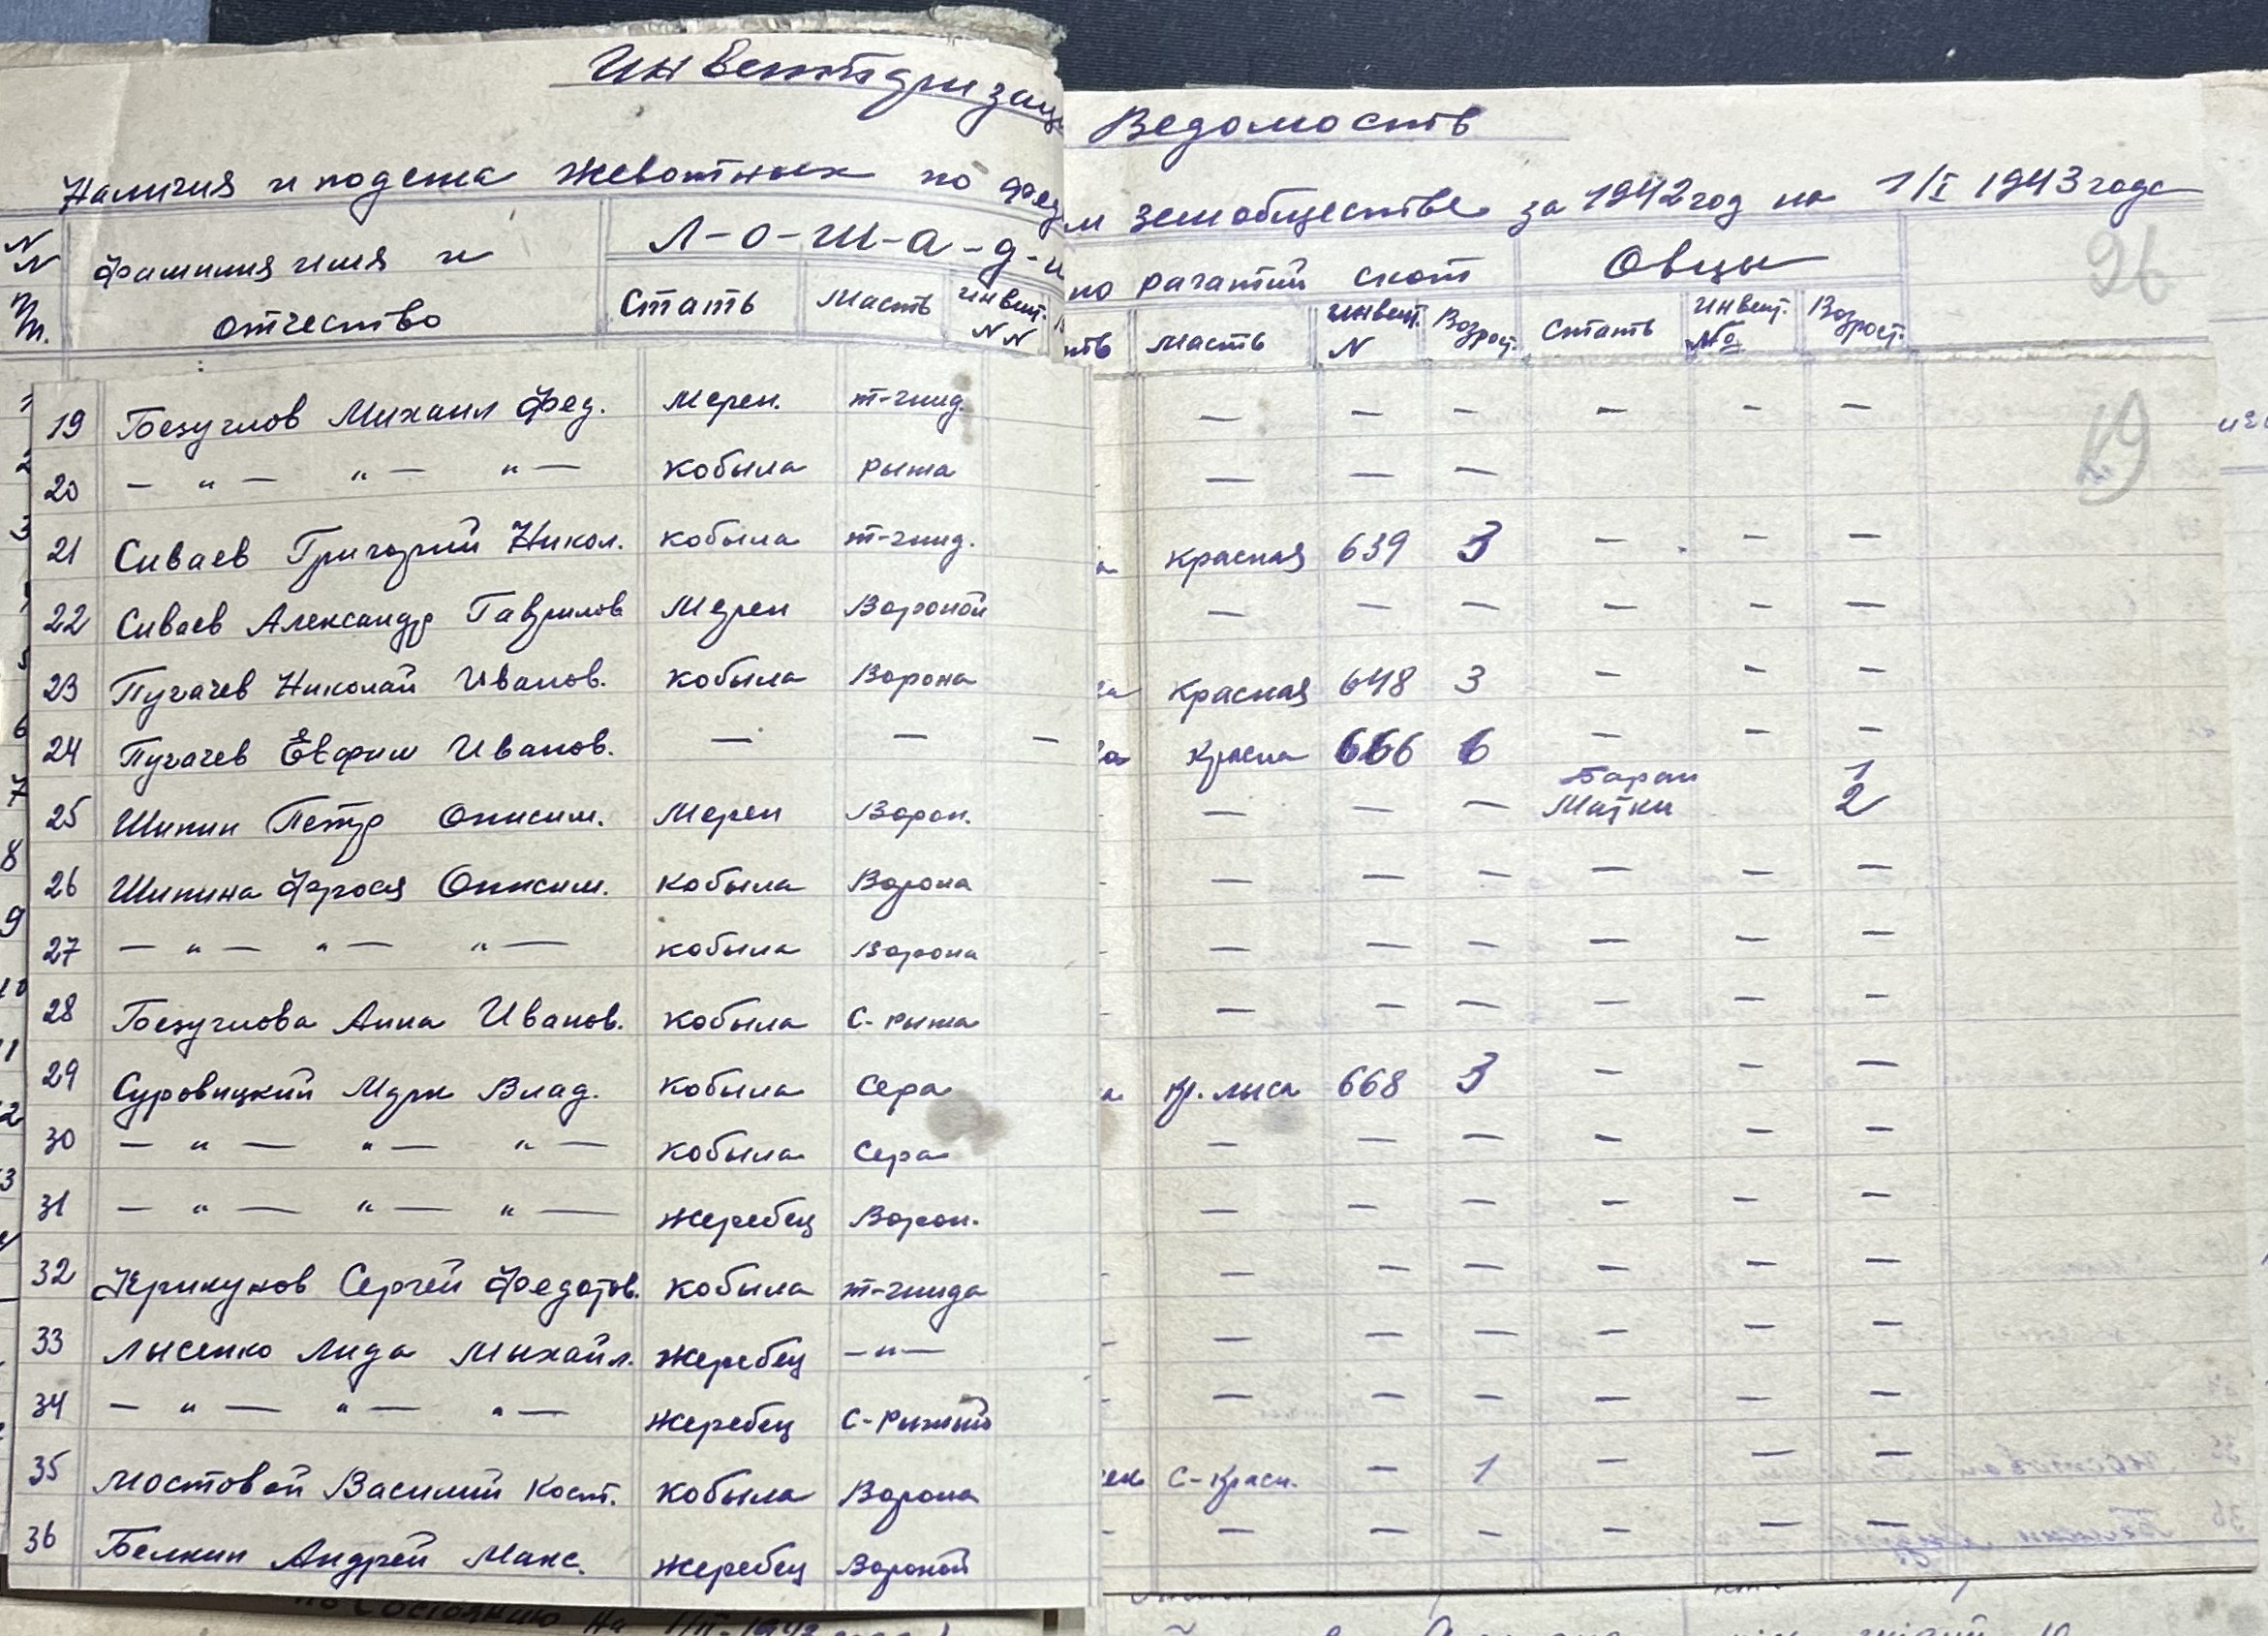 Инвентаризац Ведомость
Наличия и подсма жевотных по Фед м земобществе за 1942 год на 1/I 1943 года
N N Фамилия имя и Л-о-ш-а-д-и но рагатий скот Овцы 96
п/п. отчество Стать Масть Инвент. N N ть масть Инвент. N Возрост. Стать Инвент. № Возрост.
19 Безуглов Михаил Фед. Мерен. т-гнид. — — — — — — 19
20 — " — " — " — кобыла рыжа — — —
21 Сиваев Григорий Никол. кобыла т-гнид. а красная 639 3 — — —
22 Сиваев Александр Гаврилов Мерен Вороной — — — — — —
23 Пугачев Николай Иванов. кобыла Ворона ва красная 648 3 — — —
24 Пугачев Евфим Иванов. — — — ва красна 666 6 — — —
Баран 1
25 Шипин Петр Онисим. Мерен Ворон. — — — Матки 2
26 Шипина Фрося Онисим. кобыла Ворона - — — — — — —
27 — " — " — " — кобыла Ворона - — — — — — —
28 Безуглова Анна Иванов. кобыла С-рыжа - — — — — — —
29 Суровицкий Марк Влад. кобыла Сера а кр. лыса 668 3 — — —
30 — " — " — " — кобыла Сера — — — — — —
31 — " — " — " — жеребец Ворон. — — — — — —
32 Крикунов Сергей Федотов. кобыла т-гнида - — — — — — —
33 Лысенко Лида Михайл. жеребец — " — - — — — — — —
34 — " — " — " — жеребец С-рыжий — — — — — —
35 Мостовой Василий Кост. кобыла Ворона ек С-красн. — 1 — — —
36 Белкин Андрей Макс. жеребец Вороной - — — — — — —
по состоянию на 1/II-1943